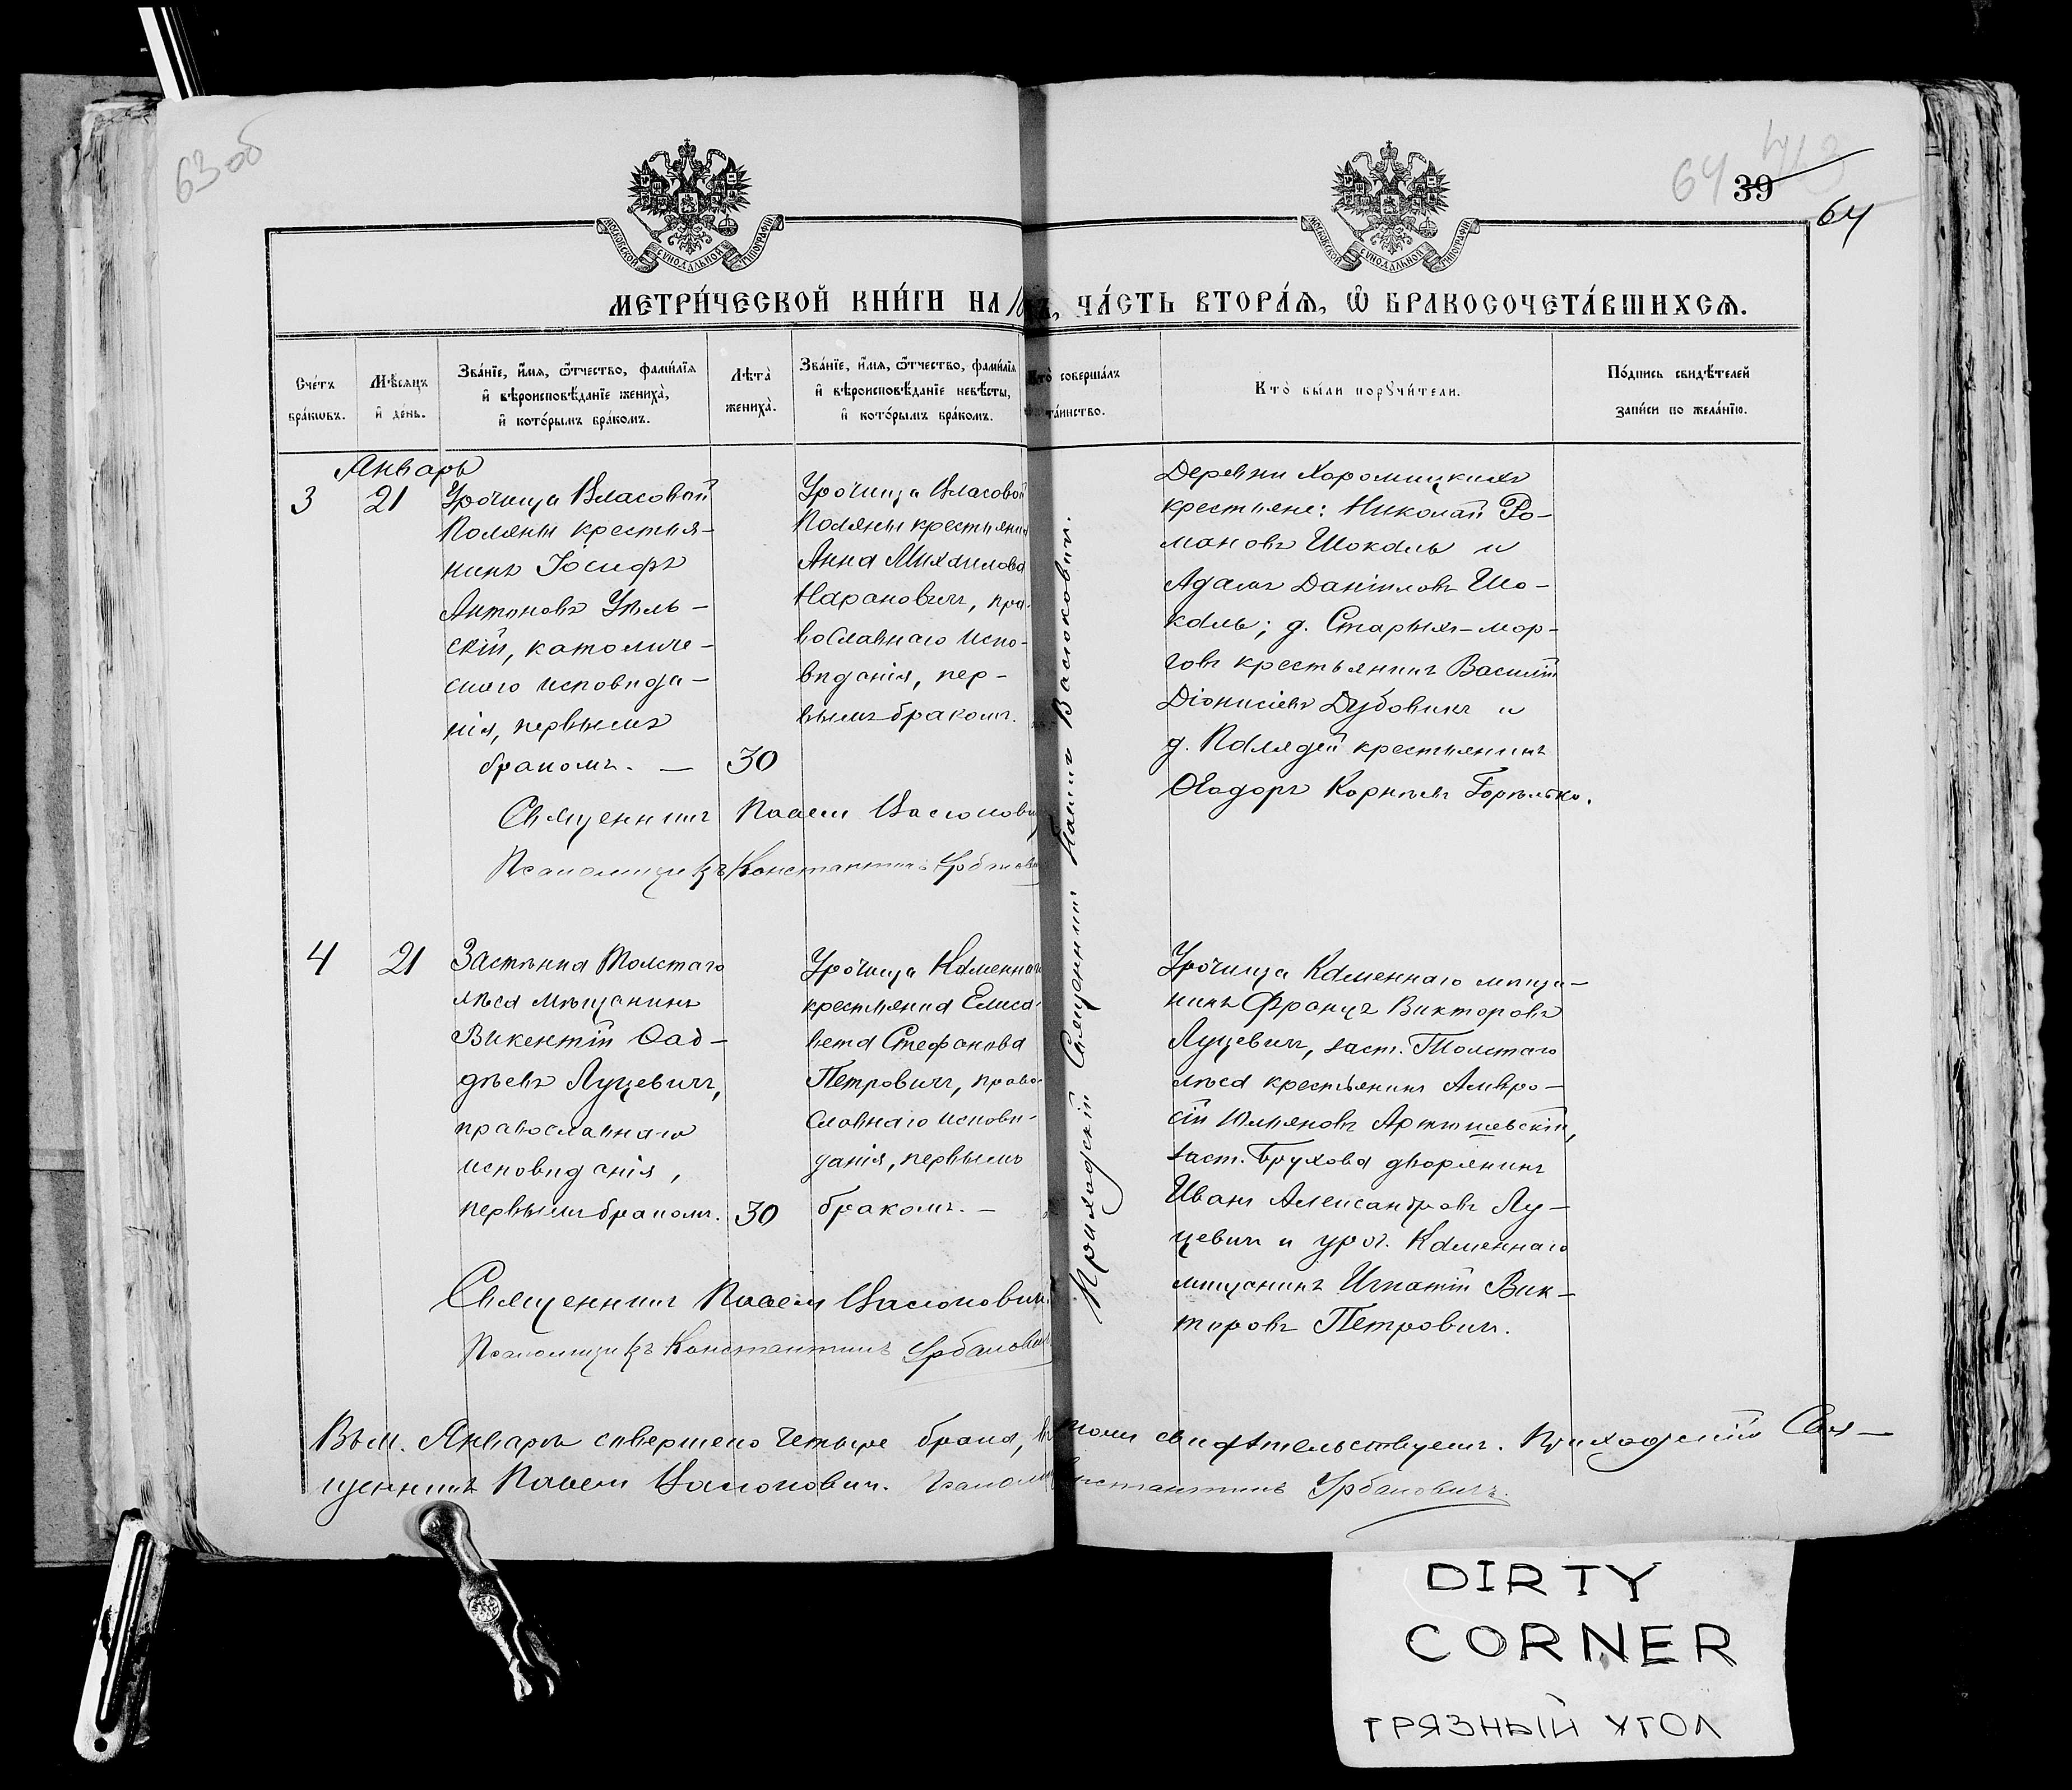 63 об
64
39
64
МОСКОВСКОЙ СѴНОДАЛЬНОЙ ТИПОГРАФІИ
МОСКОВСКОЙ СѴНОДАЛЬНОЙ ТИПОГРАФІИ
МЕТРИ́ЧЕСКОЙ КНИ́ГИ НА ЧА́СТЬ ВТОРА́Ѧ, Ѿ БРАКОСОЧЕТА́ВШИХСѦ.
Сче́тъ
бра́кѡвъ.
Мѣ́сяцъ
и҆ де́нь.
Зва́нїе, и҆́мя, ѻ҆́тчество, фами́лїя
и҆ вѣроисповѣ́данїе жениха̀,
и҆ кото́рымъ бра́комъ.
Лѣта̀
жениха̀.
Зва́нїе, и҆́мя, ѻ҆́тчество, фами́лїя
и҆ вѣроисповѣ́данїе невѣ́сты,
и҆ кото́рымъ бра́комъ.
Кто̀ соверша́лъ
та́инство.
Кто̀ бы́ли порꙋчи́тели.
По́дпись свидѣ́телей
за́писи по жела́нїю.
Январь
3
21
Урочища Власовой
Поляны крестья-
нинъ Іосифъ
Антоновъ Уголь-
скій, католиче-
скаго исповѣда-
нія, первымъ
бракомъ. —
30
Урочища Власовой
Поляны крестьянка
Анна Михаилова
Наранович, пра-
вославнаго испо-
вѣданія, пер-
вымъ бракомъ.
Приходскій Священникъ Павелъ Васюковичъ.
Деревни Хоромицкихъ
крестьяне: Николай Ро-
мановъ Шокаль и
Адамъ Даніиловъ Шо-
каль; д. Старыхъ-мор-
говъ крестьянинъ Василій
Діонисіевъ Дубовикъ и
д. Поллядей крестьянинъ
Ѳеодоръ Корнѣевъ Горѣлько.
Священникъ Павелъ Васюкович
Псаломщикъ Константинъ Урбанович
4
21
Застѣнка Толстаго
лѣса мѣщанинъ
Викентій Ѳад-
дѣевъ Луцевичъ,
православнаго
исповѣданія,
первымъ бракомъ.
30
Урочища Каменнаго
крестьянка Елиса-
вета Стефанова
Петровичъ, право-
славнаго исповѣ-
данія, первымъ
бракомъ. —
Урочища Каменнаго мѣща-
нинъ Францъ Викторовъ
Луцевичъ, заст. Толстаго
лѣса крестьянинъ Амвро-
сій Юльяновъ
заст. Брухова дворянинъ
Иванъ Александровъ Лу-
цевичъ и уроч. Каменнаго
мѣщанинъ Игнатій Вик-
торовъ Петровичъ.
Священникъ Павелъ Васюковичъ
Псаломщикъ Константинъ Урбанович
Въ м. Январѣ совершено четыре брака, въ томъ свидѣтельствуемъ. Приходскій Свя-
щенникъ Павелъ Васюковичъ. Псаломщ Константинъ Урбановичъ.
DIRTY
CORNER
ГРЯЗНЫЙ УГОЛ